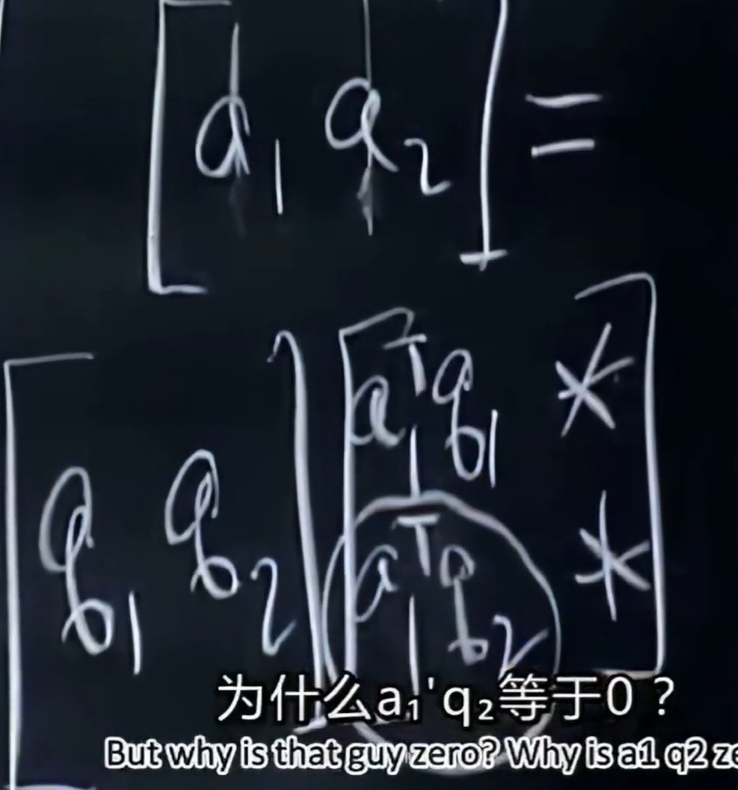 [a₁ a₂] =
[q₁ q₂] [a₁ᵀq₁ *
a₁ᵀq₂ *]
为什么a₁'q₂等于0？
But why is that guy zero? Why is a1 q2 ze